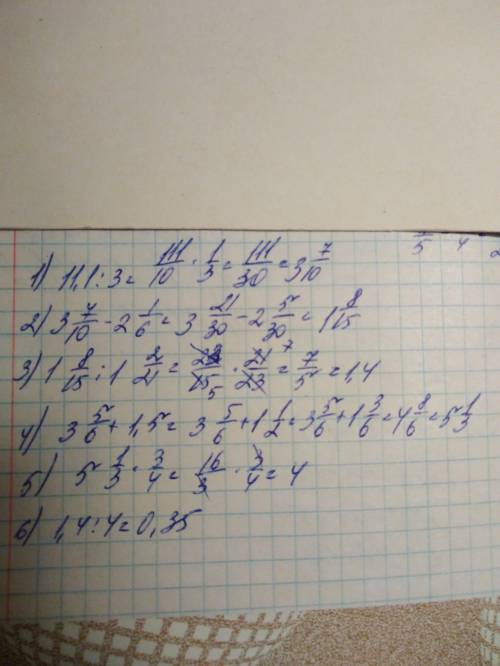 7/5 4 2
1) 11,1 : 3 = 111/10 · 1/3 = 111/30 = 3 7/10
2) 3 7/10 - 2 1/6 = 3 21/30 - 2 5/30 = 1 8/15
3) 1 8/15 : 1 2/21 = 23/15 5 · 21/23 7 = 7/5 = 1,4
4) 3 5/6 + 1,5 = 3 5/6 + 1 1/2 = 3 5/6 + 1 3/6 = 4 8/6 = 5 1/3
5) 5 1/3 · 3/4 = 16/3 · 3/4 = 4
6) 1,4 : 4 = 0,35